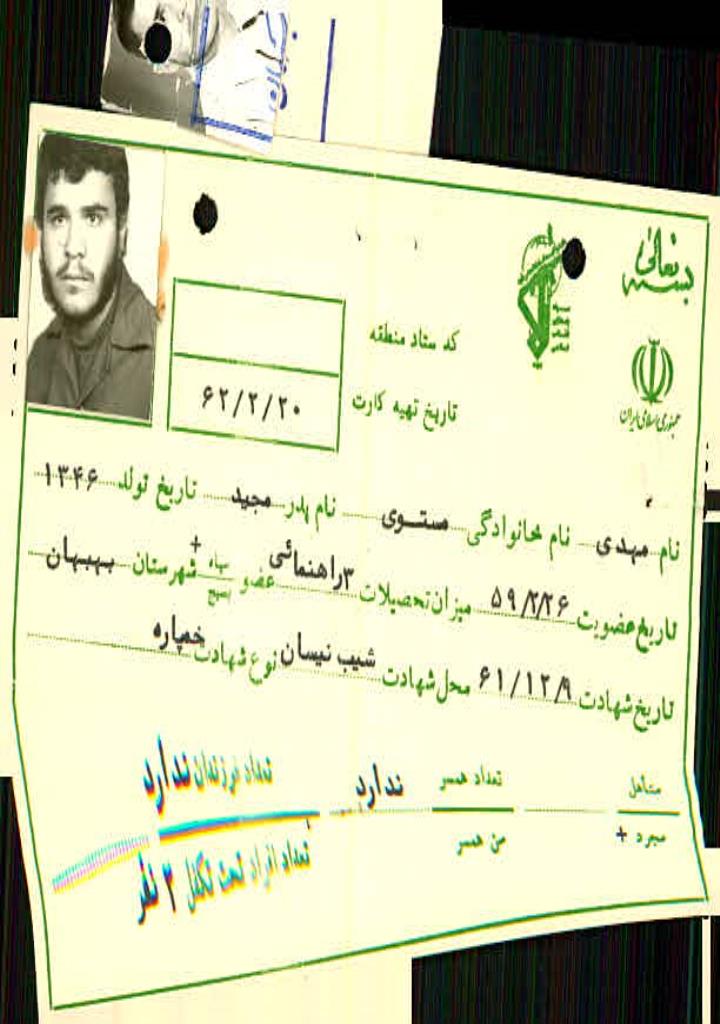 بسمه تعالی
جمهوری اسلامی ایران
کد ستاد منطقه
تاریخ تهیه کارت ۶۲/۲/۲۰
نام مهدی نام خانوادگی مستوی نام پدر مجید تاریخ تولد ۱۳۴۶
تاریخ عضویت ۵۹/۲/۲۶ میزان تحصیلات ۳راهنمائی عضو سپاه + بسیج شهرستان بهبهان
تاریخ شهادت ۶۱/۱۲/۹ محل شهادت شیب نیسان نوع شهادت خمپاره
متأهل تعداد همسر ندارد تعداد فرزندان ندارد
مجرد + سن همسر تعداد افراد تحت تکفل ۲ نفر